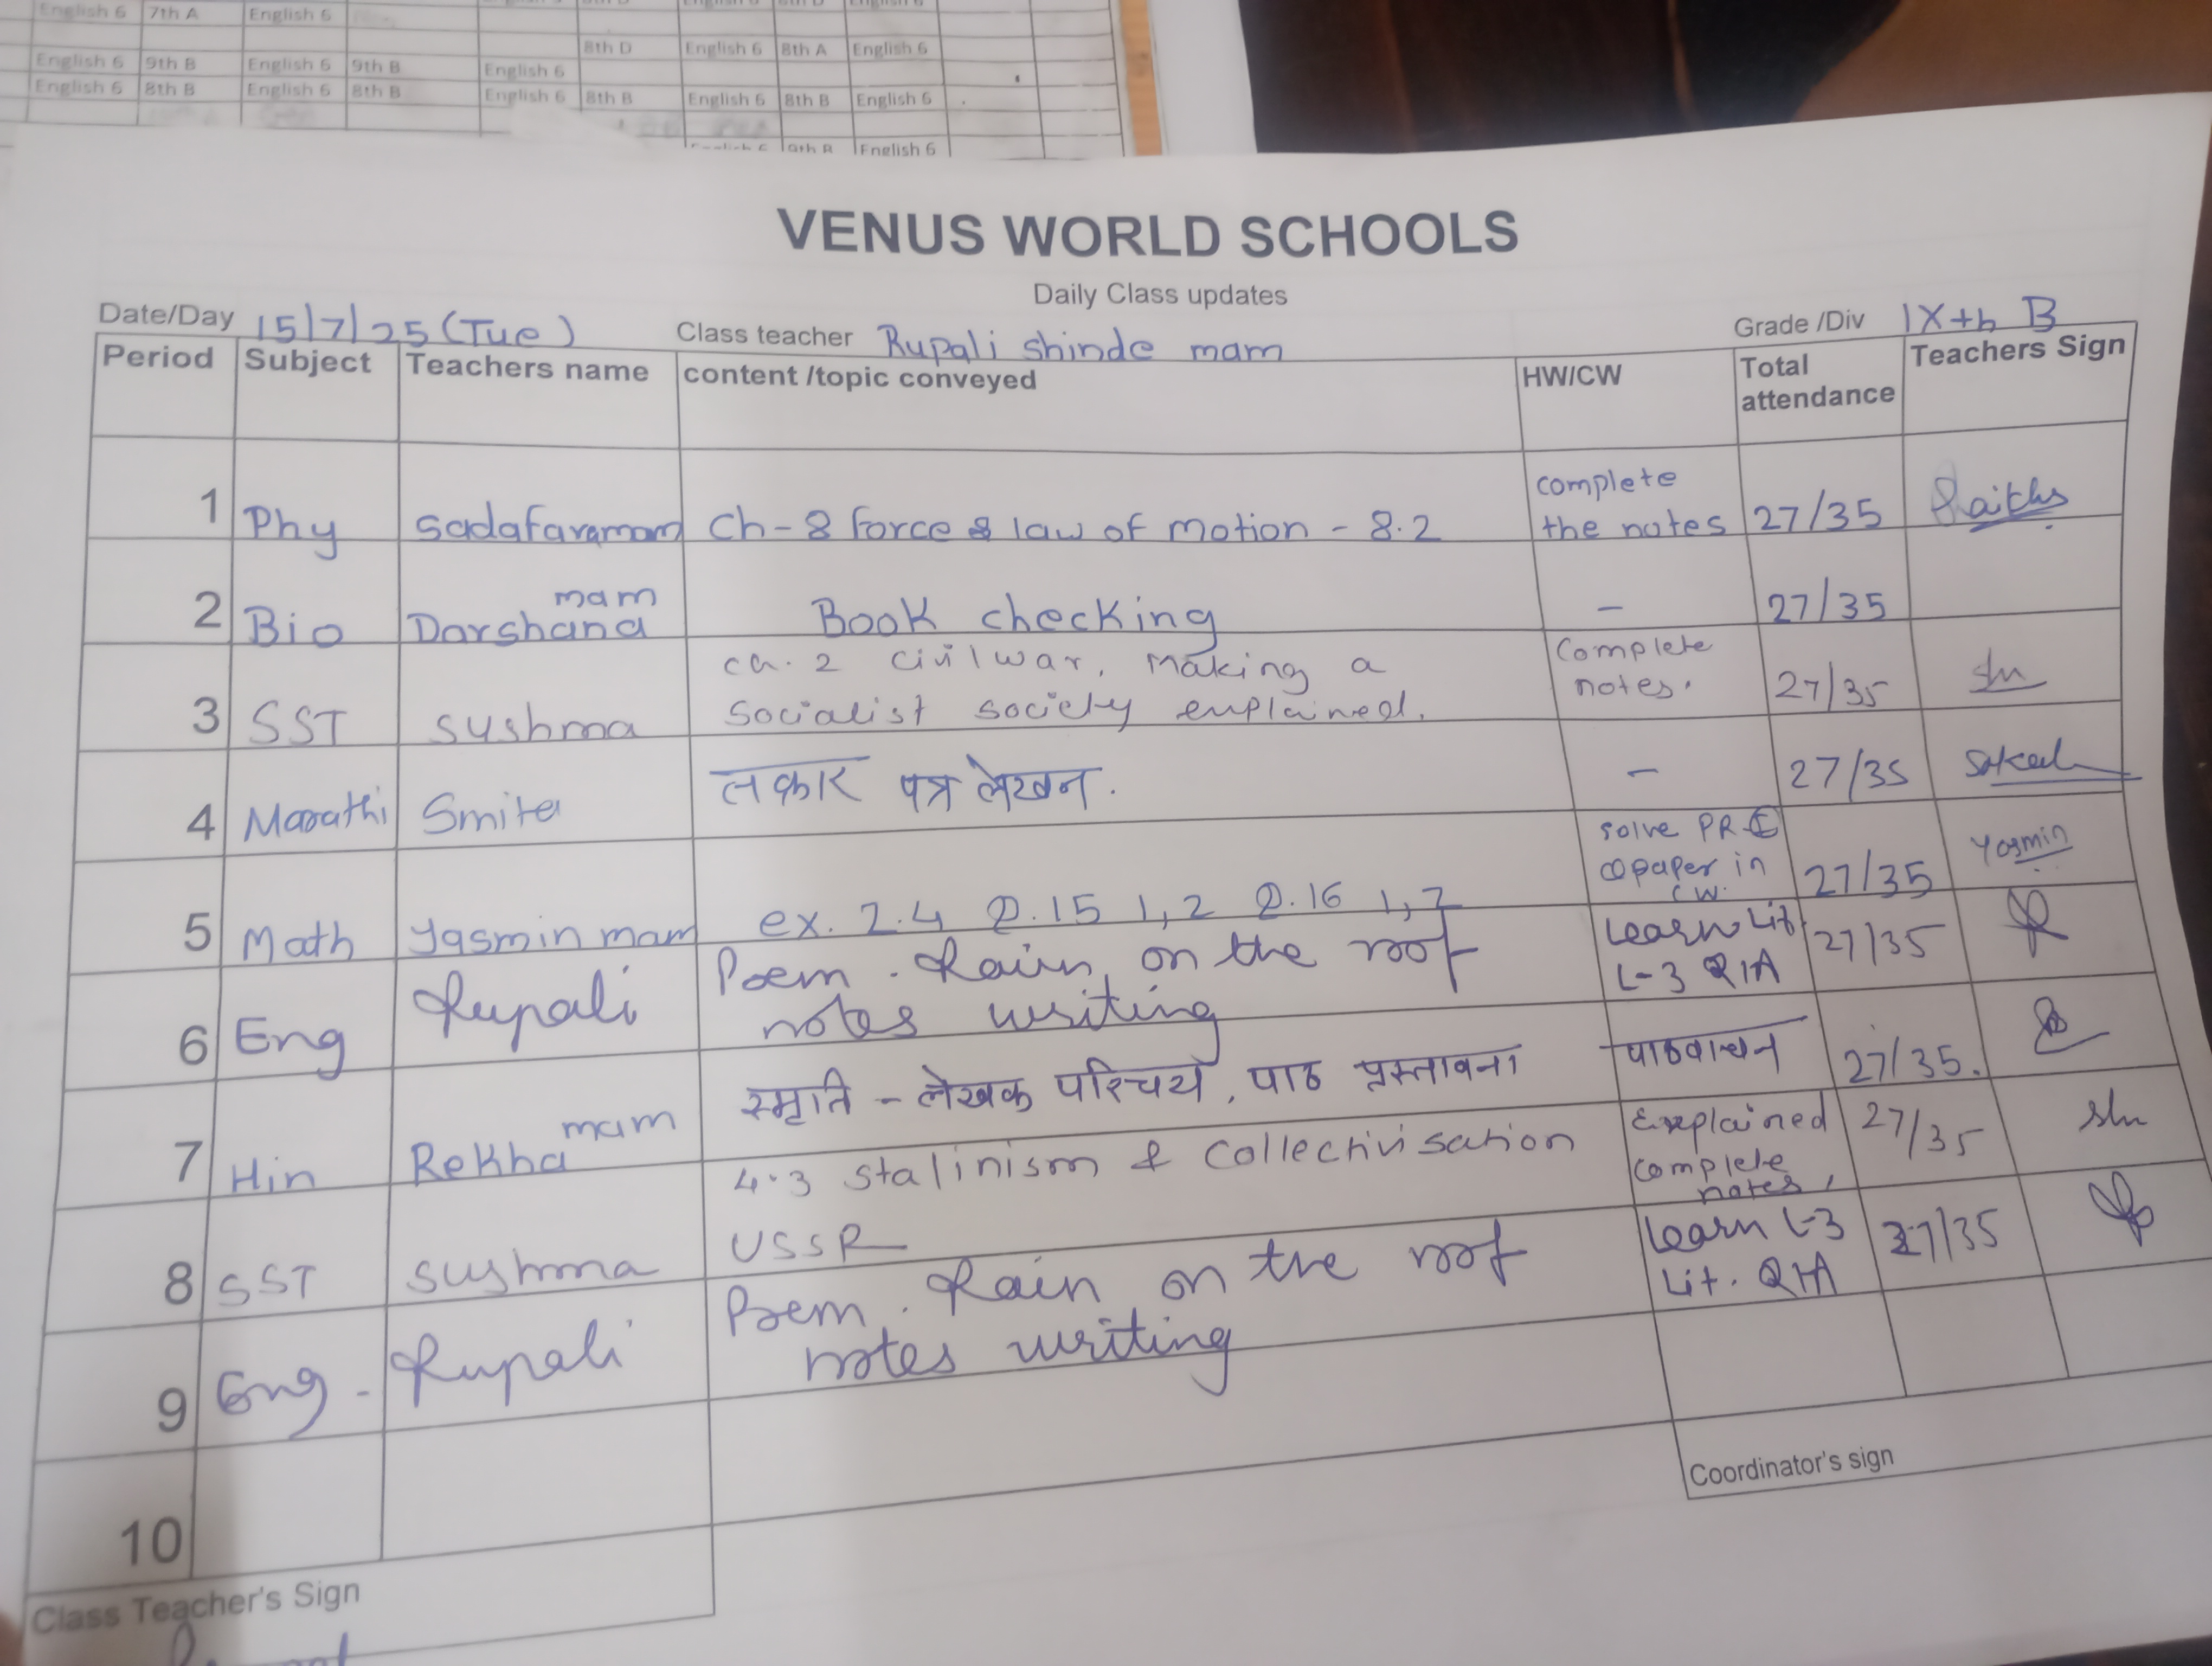 English 6 7th A English 6
8th D English 6 8th A English 6
English 6 9th B English 6 9th B English 6
English 6 8th B English 6 8th B English 6 8th B English 6 8th B English 6
9th B English 6
VENUS WORLD SCHOOLS
Daily Class updates
Date/Day 15/7/25 (Tue) Class teacher Rupali shinde mam Grade /Div IXth B
Period Subject Teachers name content /topic conveyed HW/CW Total attendance Teachers Sign
1 Phy Sadafaramam Ch-8 force & law of motion - 8.2 complete the notes 27/35
2 Bio Darshana mam Book checking - 27/35
3 SST sushma ch. 2 civil war, Making a socialist society explained. Complete notes. 27/35
4 Marathi Smita लकार पत्र लेखन. - 27/35
5 Math Yasmin mam ex. 2.4 Q.15 1,2 Q.16 1,2 solve PR-I paper in CW. 27/35 Yasmin
6 Eng Rupali Poem. Rain on the roof notes writing Learn Lit L-3 Q/A 27/35
7 Hin Rekha mam स्मृति - लेखक परिचय, पाठ प्रस्तावना पाठवाचन 27/35.
8 SST sushma 4.3 Stalinism & Collectivisation USSR Explained complete notes, 27/35
9 Eng - Rupali Poem. Rain on the roof notes writing Learn L-3 Lit. Q/A 27/35
10
Coordinator's sign
Class Teacher's Sign